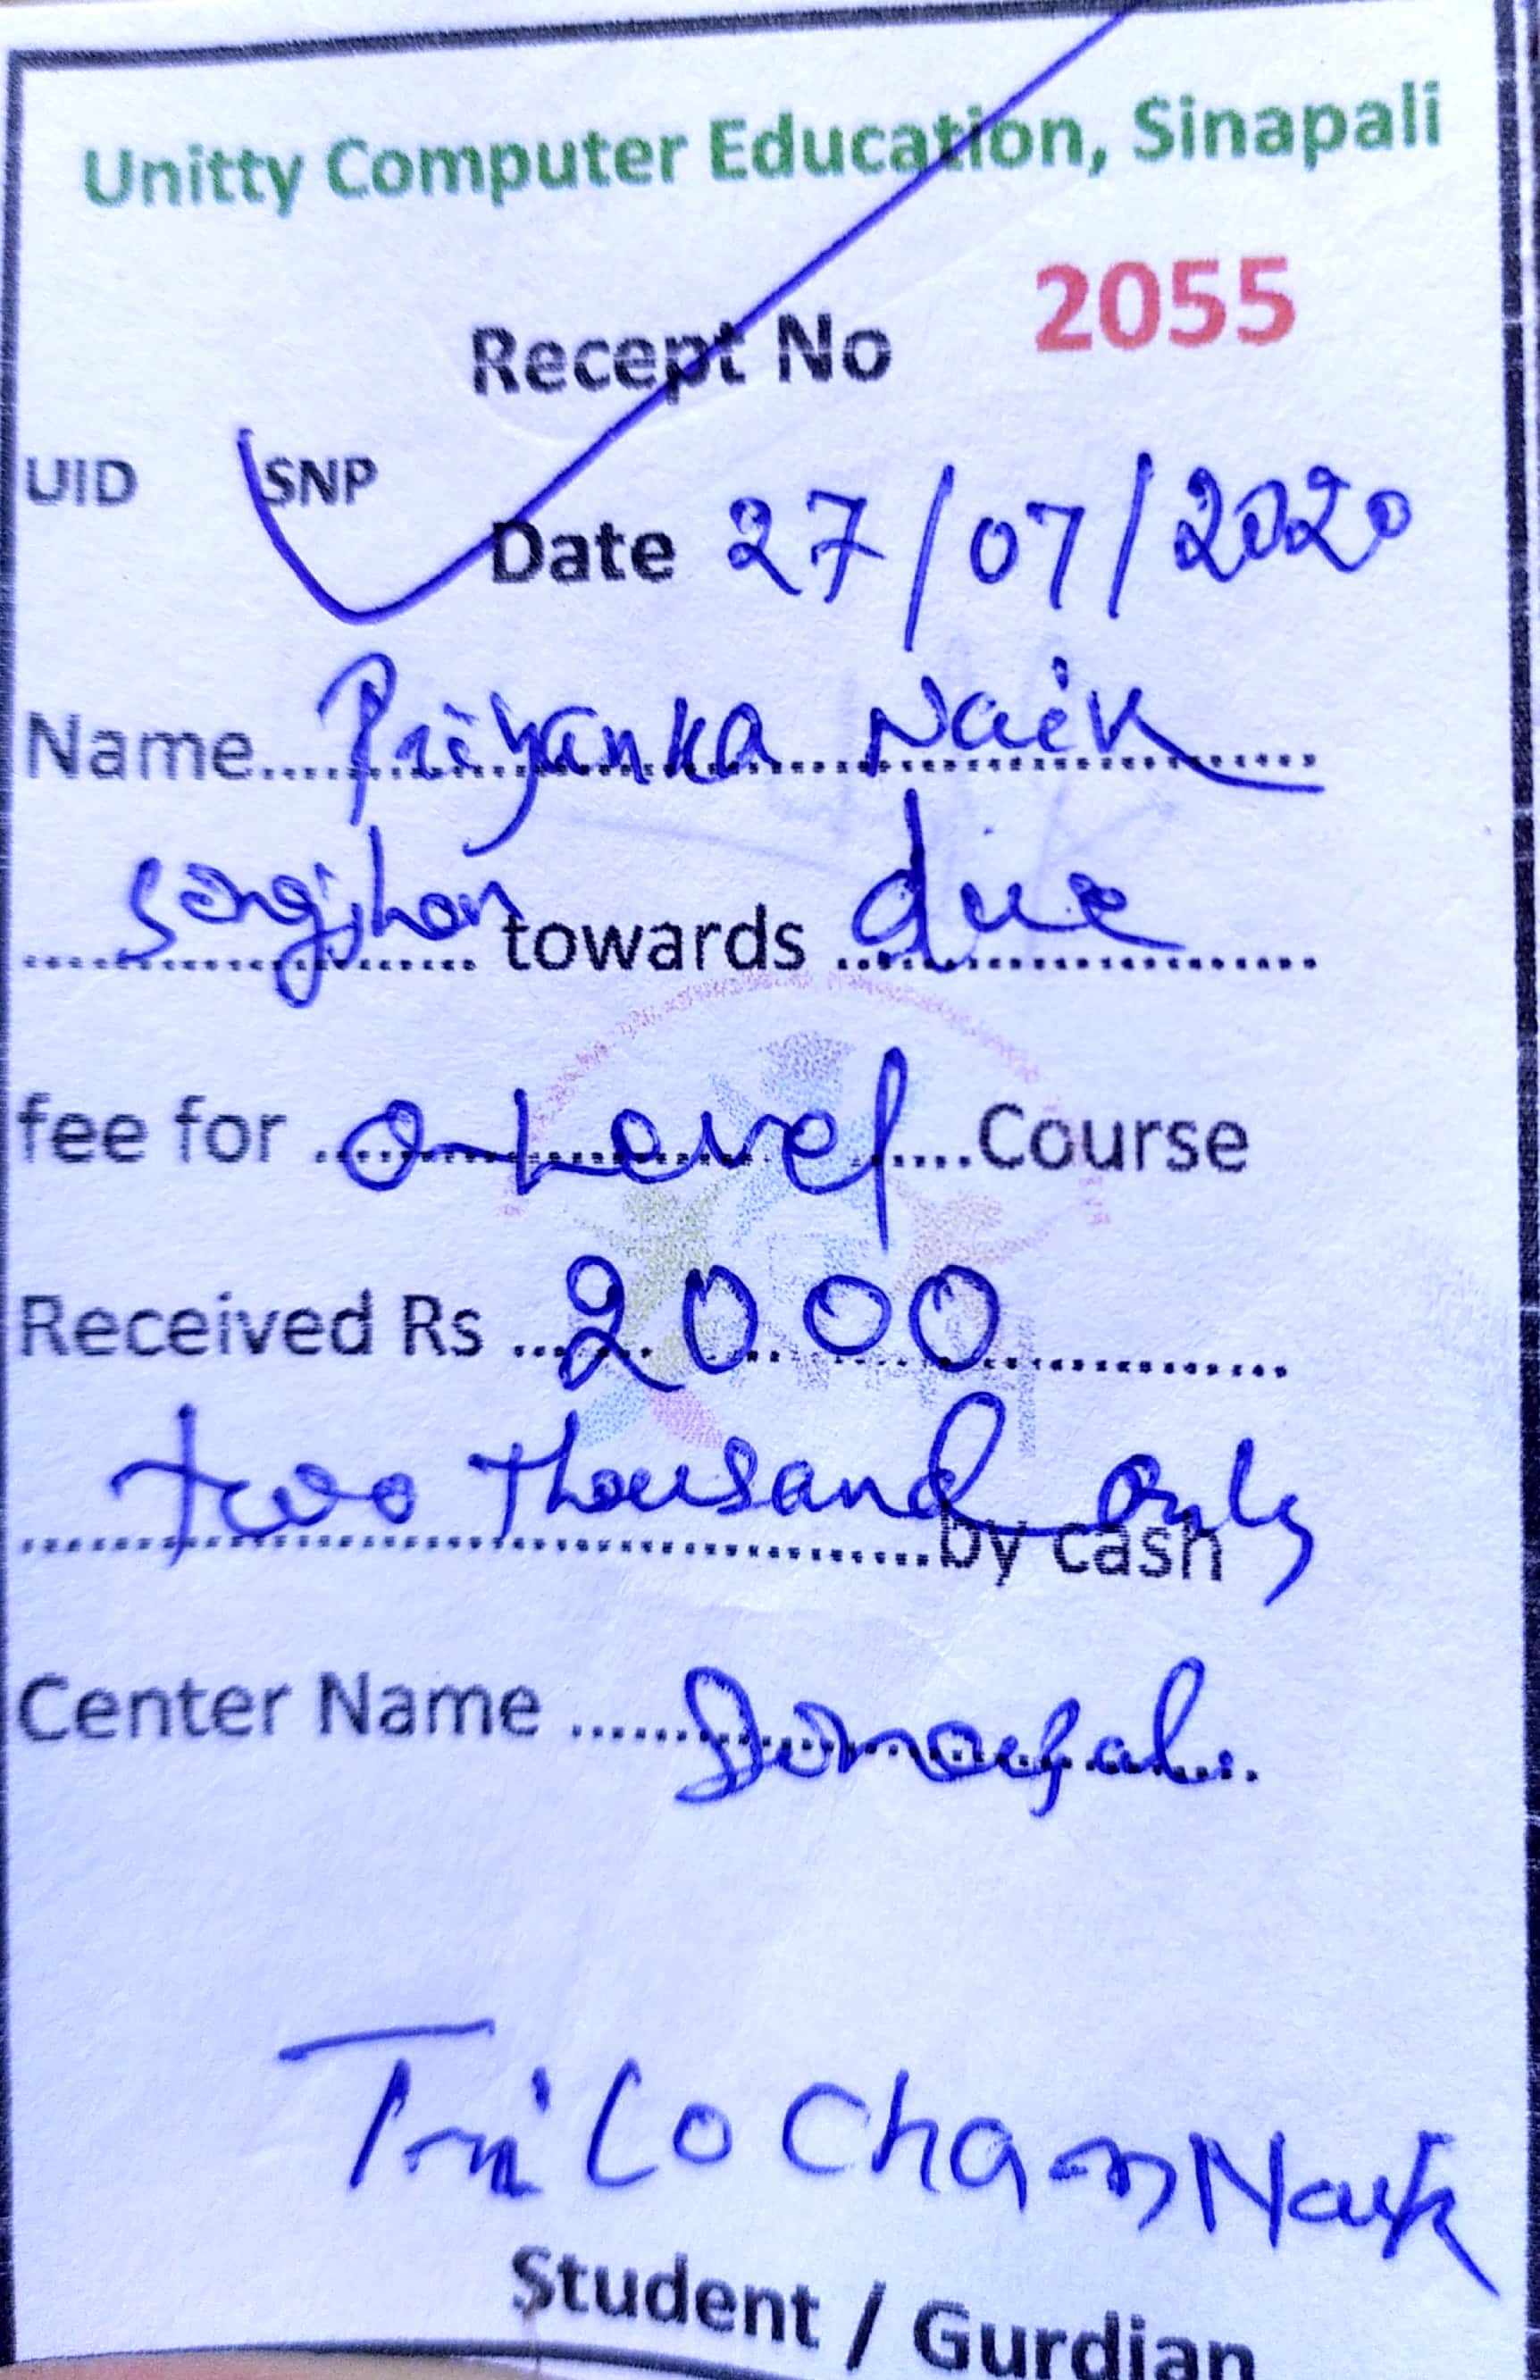 Unitty Computer Education, Sinapali
Recept No 2055
UID SNP
Date 27/07/2020
Name.......Priyanka Naik.......
.......... towards ...due..........
fee for ...O-Level.....Course
Received Rs ...2000..............
two thousand only by cash
Center Name ......Sinapali..
TriLoChan Naik
Student / Gurdian